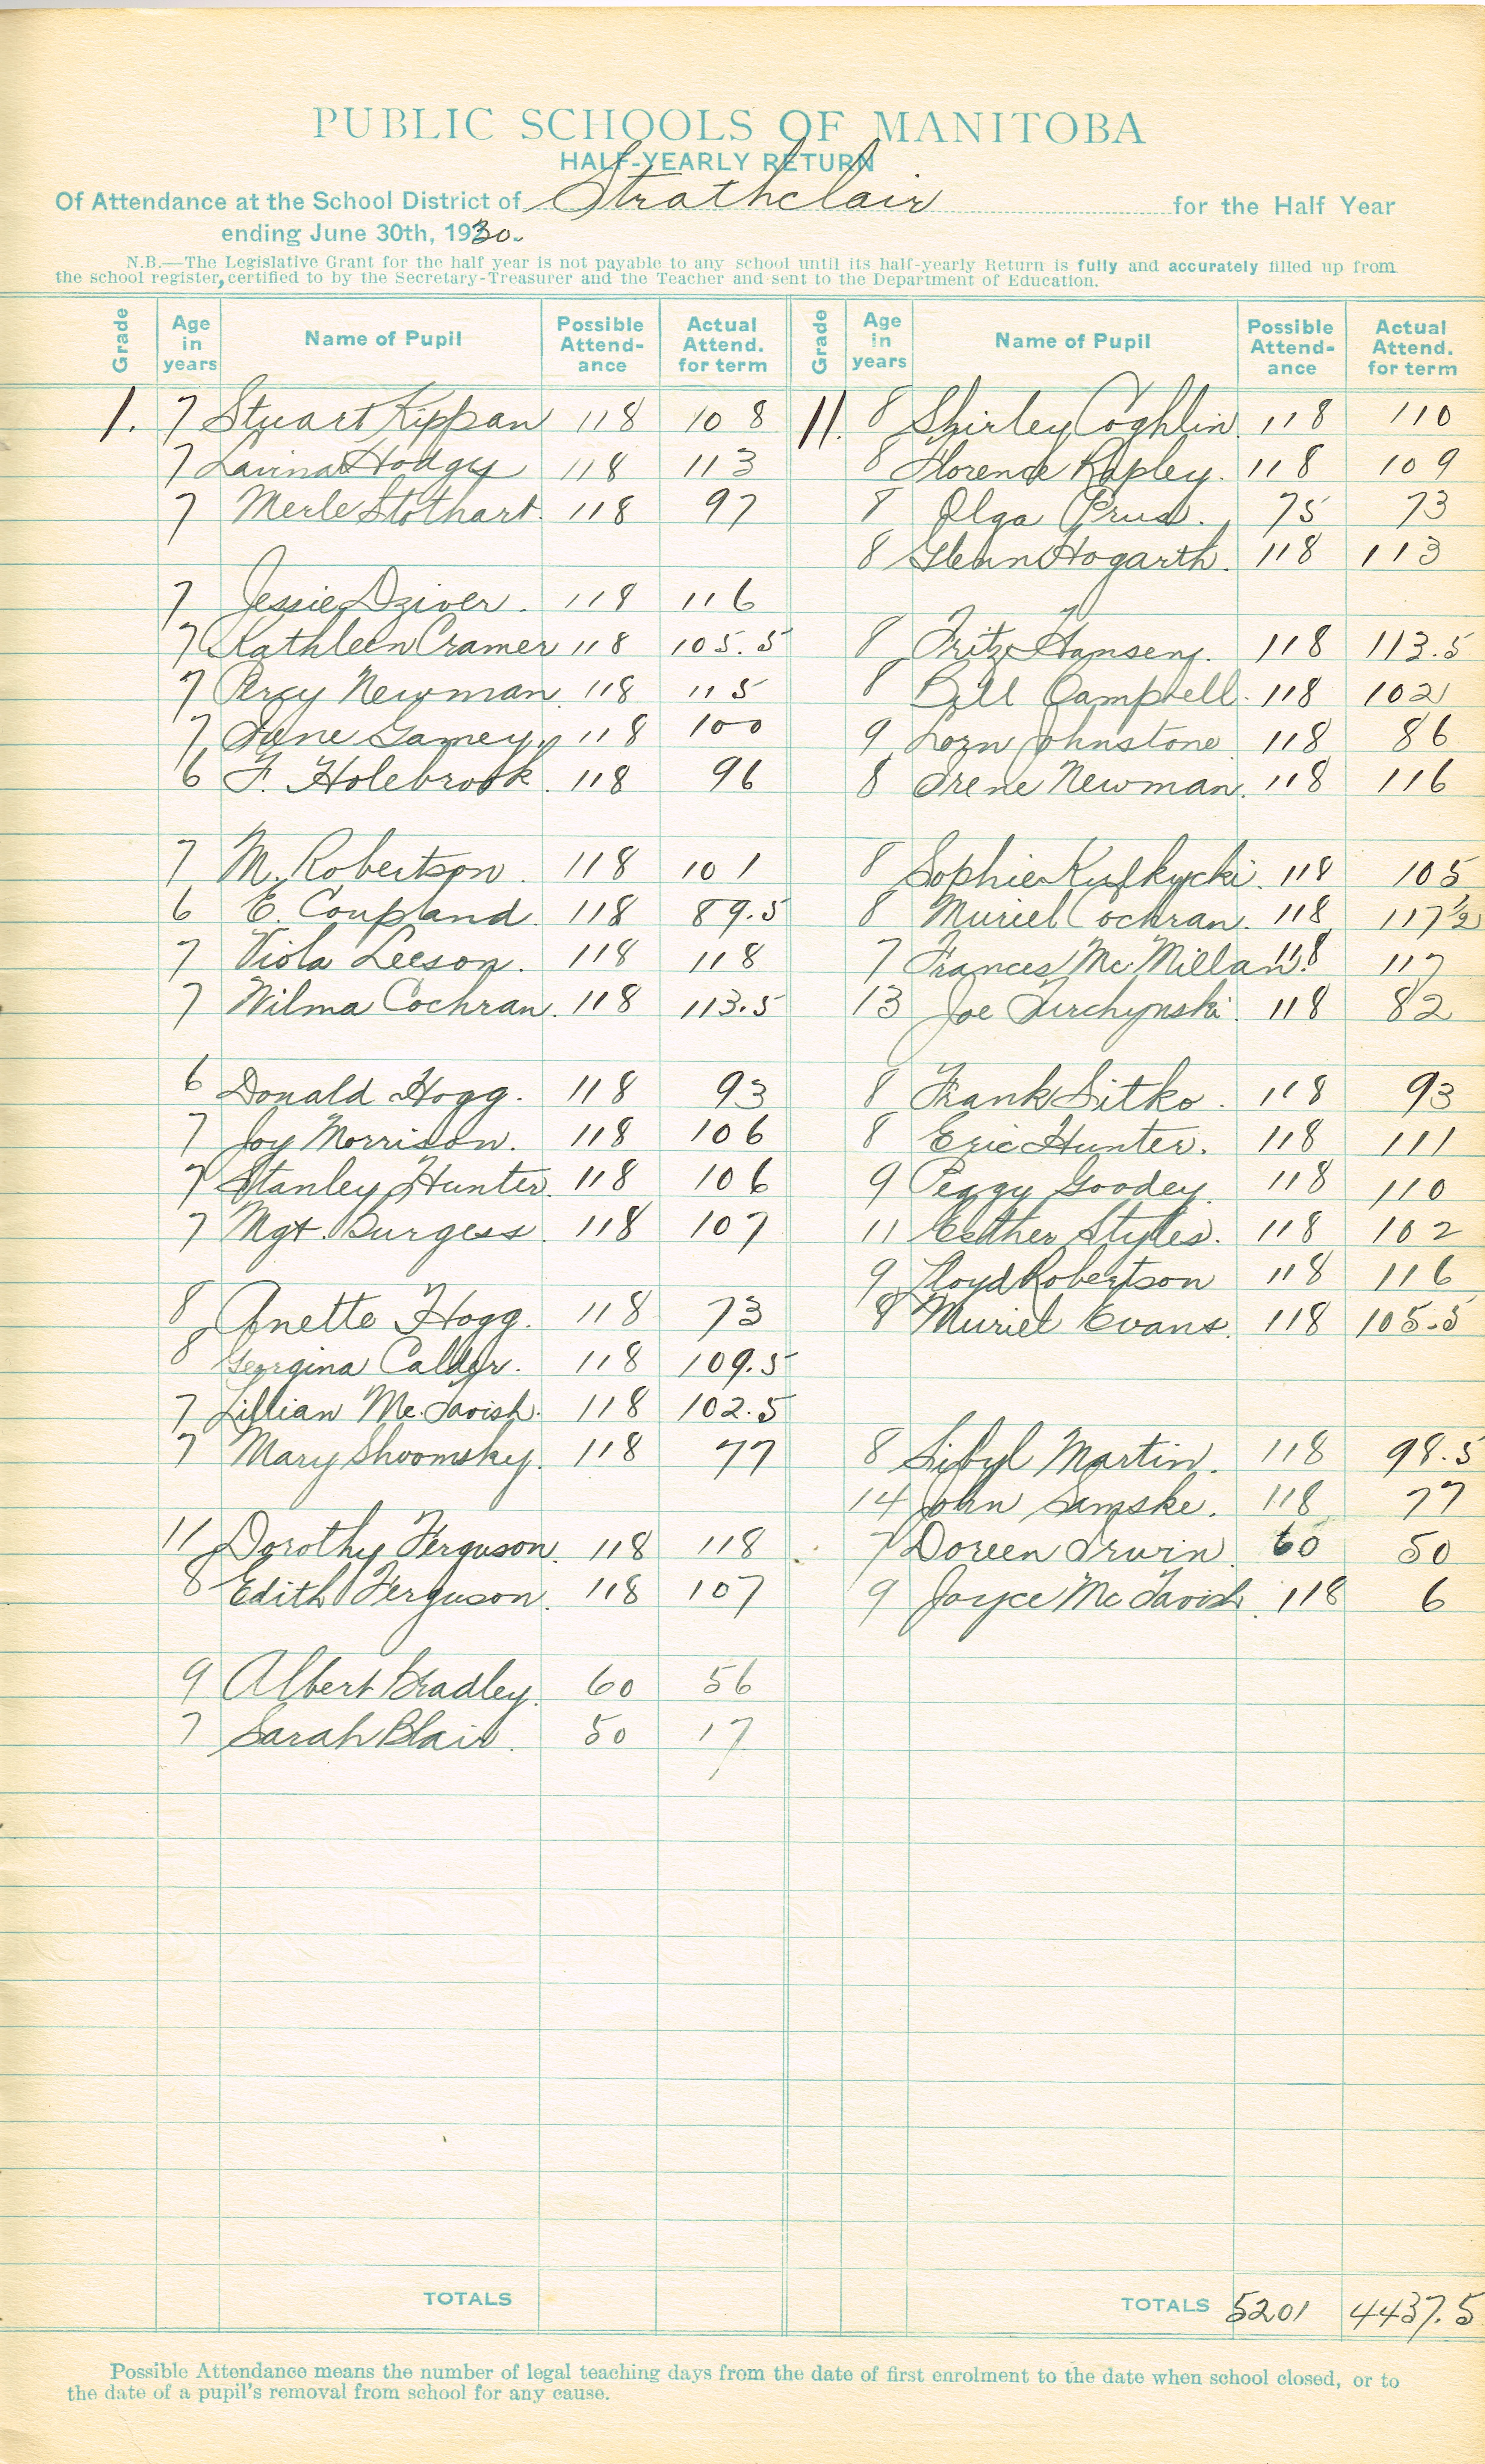 PUBLIC SCHOOLS OF MANITOBA
HALF-YEARLY RETURN
Of Attendance at the School District of Strathclair for the Half Year
ending June 30th, 1930.
N.B.—The Legislative Grant for the half year is not payable to any school until its half-yearly Return is fully and accurately filled up from
the school register, certified to by the Secretary-Treasurer and the Teacher and sent to the Department of Education.
Grade Age in years Name of Pupil Possible Attend-ance Actual Attend. for term
1. 7 Stuart Kippan 118 108
7 Laurina Hodgy 118 113
7 Merle Stothart. 118 97
7 Jessie Dziver. 118 116
7 Kathleen Cramer 118 105.5
7 Percy Newman 118 115
7 June Gamey. 118 100
6 F. Holebrook. 118 96
7 M. Robertson. 118 101
6 E. Coupland. 118 89.5
7 Viola Leeson. 118 118
7 Wilma Cochran. 118 113.5
6 Donald Hogg. 118 93
7 Joy Morrison. 118 106
7 Stanley Hunter. 118 106
7 Mgt. Burgess. 118 107
8 Anette Hogg. 118 73
8 Georgina Calder. 118 109.5
7 Lillian Mc.Tavish. 118 102.5
7 Mary Shoomsky. 118 77
11 Dorothy Ferguson. 118 118
8 Edith Ferguson. 118 107
9 Albert Bradley. 60 56
7 Sarah Blair. 50 17
TOTALS
Grade Age in years Name of Pupil Possible Attend-ance Actual Attend. for term
11. 8 Shirley Coghlin 118 110
8 Florence Rapley. 118 109
8 Olga Prud. 75 73
8 Glenn Hogarth. 118 113
8 Fritz Hansen. 118 113.5
8 Bill Campbell. 118 102
9 Lorn Johnstone 118 86
8 Irene Newman. 118 116
8 Sophie 118 105
8 Muriel Cochran. 118 117½
7 Frances Mc.Millan. 118 117
13 Joe 118 82
8 Frank Sitko. 118 93
8 Eric Hunter. 118 111
9 Peggy Goodey. 118 110
11 Esther Styles. 118 102
9 Lloyd Robertson 118 116
8 Muriel Evans. 118 105.5
8 Sibyl Martin. 118 98.5
14 John Samske. 118 77
7 Doreen Irwin 60 50
9 Joyce McTavish. 118 6
TOTALS 5201 4437.5
Possible Attendance means the number of legal teaching days from the date of first enrolment to the date when school closed, or to
the date of a pupil's removal from school for any cause.